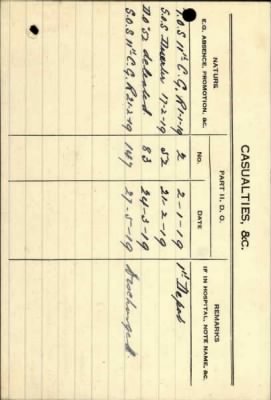 CASUALTIES, &C.
NATURE
E.G. ABSENCE, PROMOTION, &C.
PART II. D. O.
NO.
DATE
REMARKS
IF IN HOSPITAL, NOTE NAME, &C.
T.O.S 11th C.G.R 2-1-19 2 2-1-19 1st Depot
S.O.S Deserter 17-2-19 52 21-2-19
D.O 52 deleted 83 24-3-19
S.O.S 11th C.G.R 147 27-5-19 Discharged